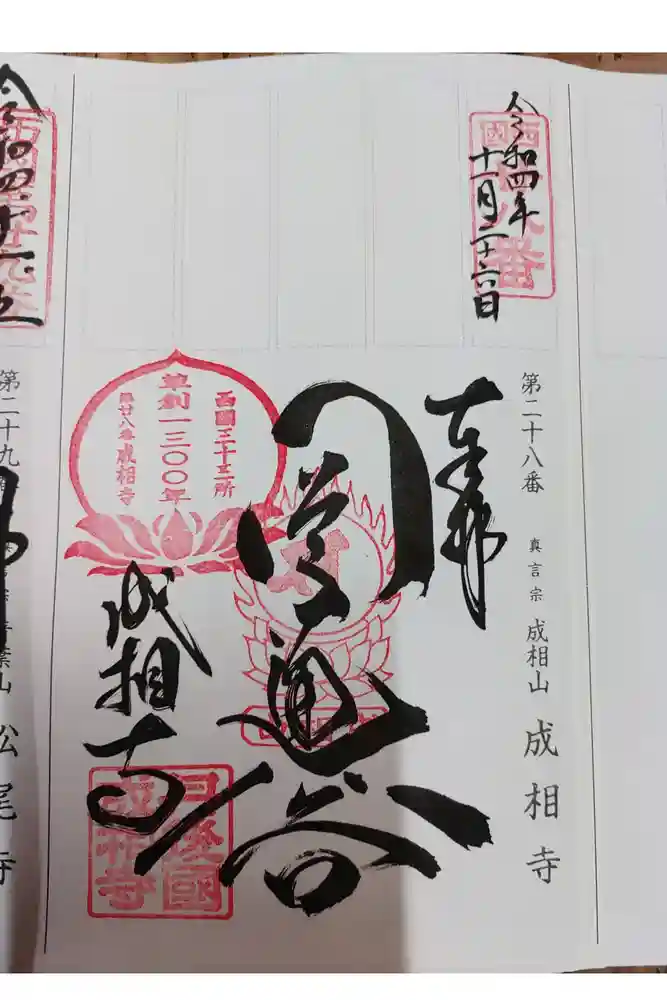 令和四年
十一月二十六日
西国
八番
第二十八番 真言宗 成相山 成相寺
奉拝
圓通
成相寺
西國三十三所
草創一三〇〇年
第廿八番 成相寺
丹後國
成相寺
第二十九
松尾寺